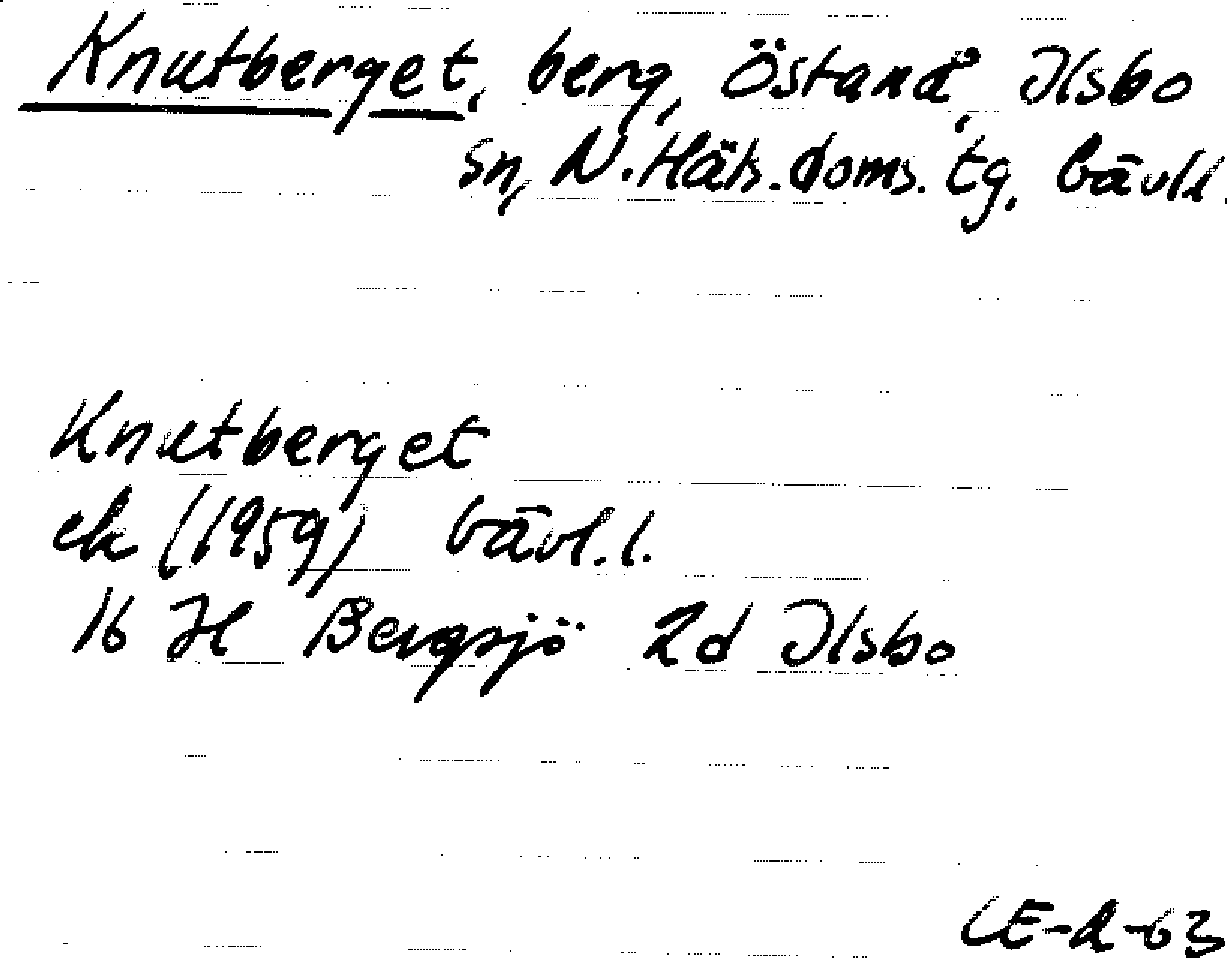 Knutberget, berg, Östanå, Ilsbo
sn, N. Häls. doms. tg, Gävl.l.
Knutberget
ek (1959) Gävl.l.
16 H Bergsjö 2d Ilsbo